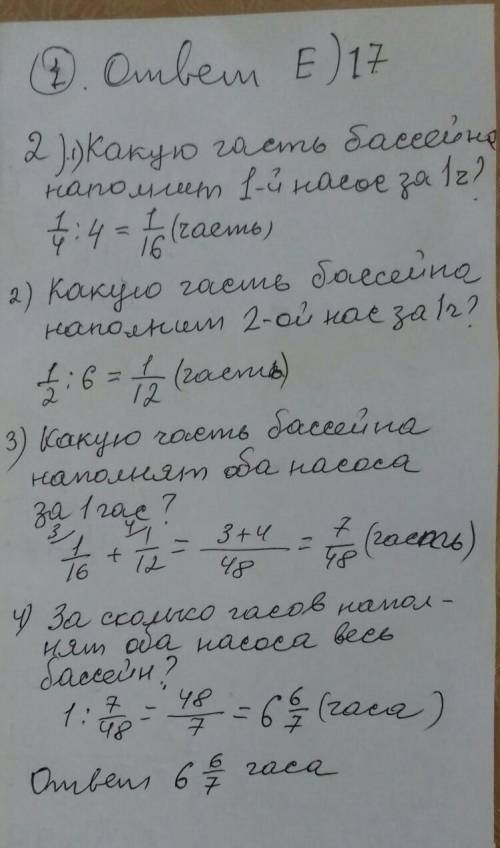 (1). Ответ E) 17
2) .1) Какую часть бассейна
наполнит 1-й насос за 1ч?
1/4 : 4 = 1/16 (часть)
2) Какую часть бассейна
наполнит 2-ой нас за 1ч?
1/2 : 6 = 1/12 (часть)
3) Какую часть бассейна
наполнят оба насоса
за 1 час?
3/ 1/16 + 4/ 1/12 = 3+4/48 = 7/48 (часть)
4) За сколько часов напол-
нят оба насоса весь
бассейн?
1 : 7/48 = 48/7 = 6 6/7 (часа)
Ответ 6 6/7 часа